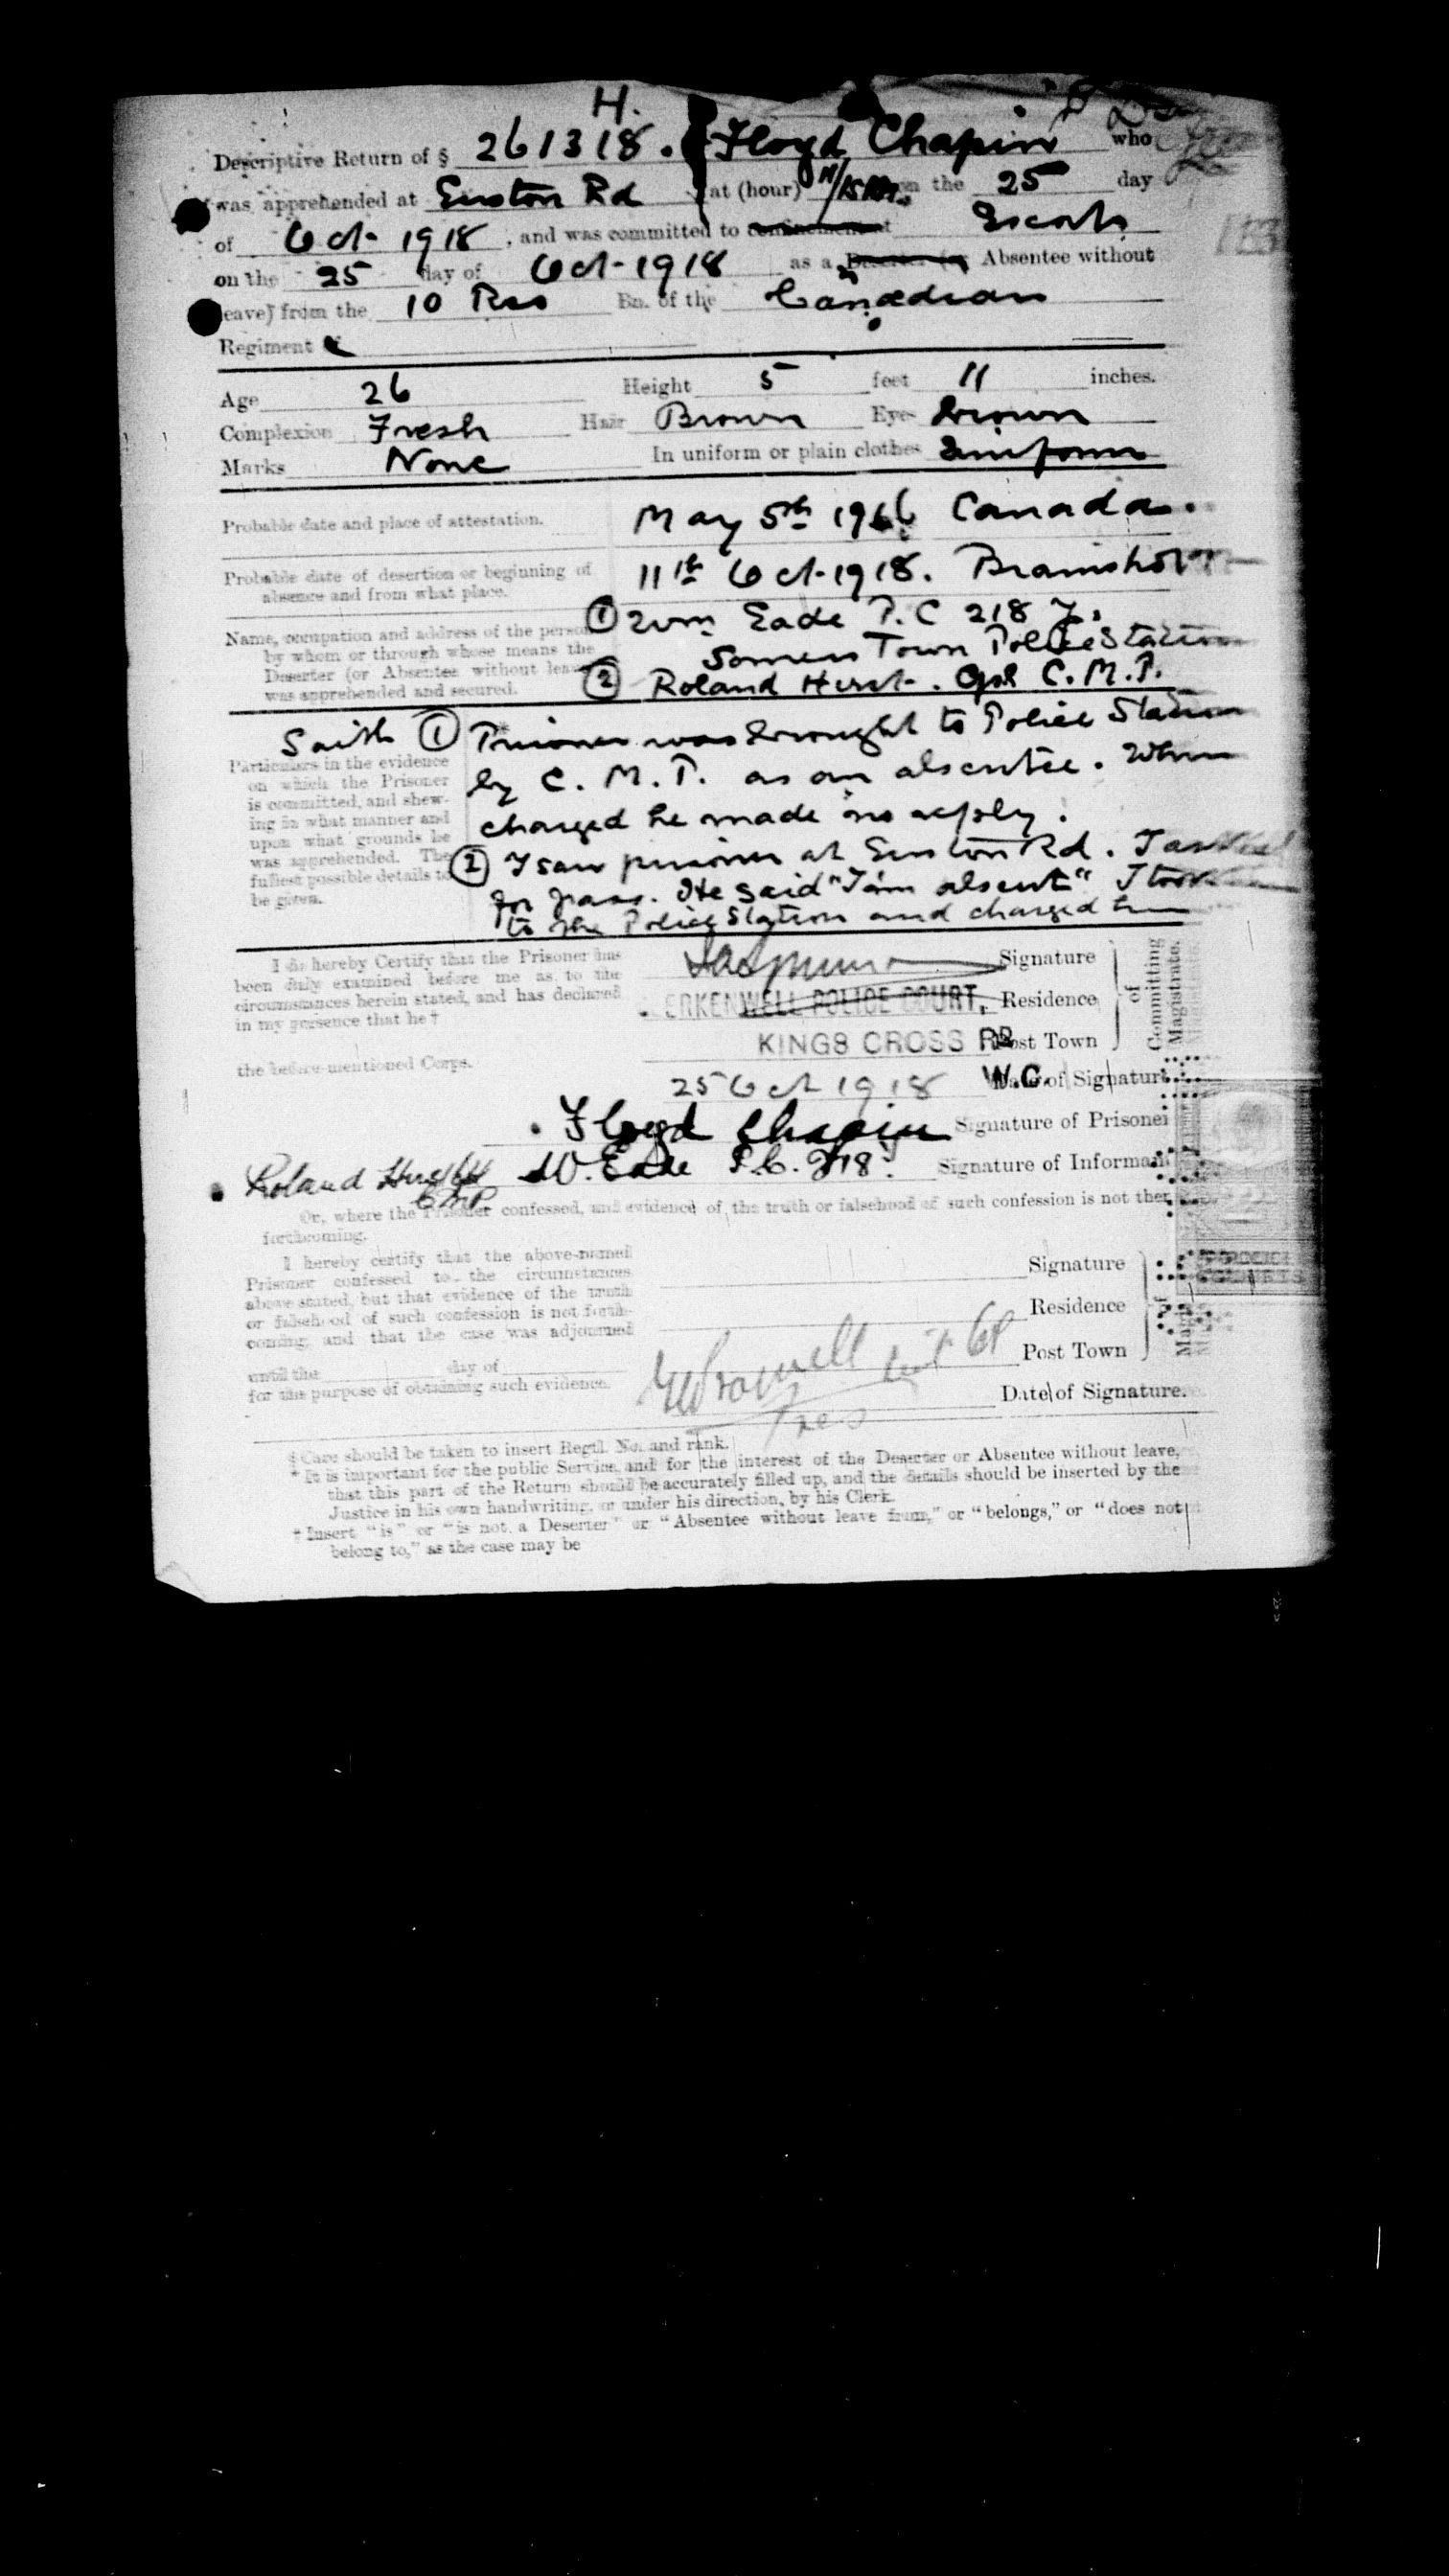 H.
Descriptive Return of § 261318. Floyd Chapin who
was apprehended at Euston Rd at (hour) on the 25 day
of Oct- 1918, and was committed to confinement at Escort
on the 25 day of Oct-1918 as a Deserter (or Absentee without
leave) from the 10 Res Bn. of the Canadian
Regiment
Age 26 Height 5 feet 11 inches.
Complexion Fresh Hair Brown Eyes brown
Marks None In uniform or plain clothes Uniform
Probable date and place of attestation. May 5th 1916 Canada.
Probable date of desertion or beginning of absence and from what place. 11th Oct-1918. Bramshott
Name, occupation and address of the person by whom or through whose means the Deserter (or Absentee without leave) was apprehended and secured.
① Wm Eade P.C 218 Y.
Somers Town Police Station
② Roland Hirst. Cpl C.M.P.
Saith ① Prisoner was brought to Police Station
by C. M. P. as an absentee. When
charged he made no reply.
② I saw prisoner at Euston Rd. I asked
for pass. He said "I am absent" I took
to the Police Station and charged
Particulars in the evidence
on which the Prisoner
is committed, and shew-
ing in what manner and
upon what grounds he
was apprehended. The
fullest possible details to
be given.
I do hereby Certify that the Prisoner has
been duly examined before me as to the
circumstances herein stated, and has declared
in my presence that he †
the before-mentioned Corps.
Signature
ERKENWELL POLICE COURT, Residence
KINGS CROSS RD Post Town
W.C.
25 Oct 1918 Date of Signature
of Committing Magistrate.
Floyd Chapin Signature of Prisoner
Roland W. Eade P.C. 218 Y Signature of Informant
CMP
Or, where the Prisoner confessed, and evidence of the truth or falsehood of such confession is not then
forthcoming.
I hereby certify that the above-named
Prisoner confessed to the circumstances
above stated, but that evidence of the truth
or falsehood of such confession is not forth-
coming, and that the case was adjourned
until the day of
for the purpose of obtaining such evidence.
Signature
Residence
Post Town
Date of Signature.
§ Care should be taken to insert Regtl. No. and rank.
* It is important for the public Service, and for the interest of the Deserter or Absentee without leave,
that this part of the Return should be accurately filled up, and the details should be inserted by the
Justice in his own handwriting, or under his direction, by his Clerk.
† Insert "is" or "is not a Deserter" or "Absentee without leave from," or "belongs," or "does not
belong to," as the case may be